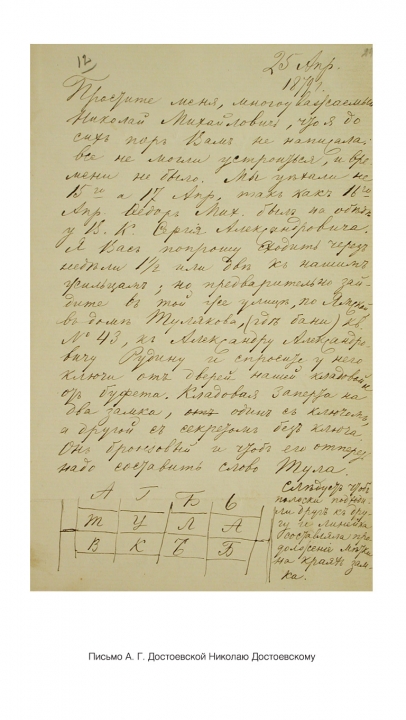 12
25 Апр.
1879 г.
Простите меня, многоуважаемый
Николай Михайловичъ, что я до
сихъ поръ Вамъ не написала:
все не могли устроиться, и вре
мени не было. Мы уѣхали не
15го а 17 Апр., такъ какъ 16го
Апр. Ѳедоръ Мих. былъ на обѣдѣ
у В. К. Сергѣя Александровича.
Я Васъ попрошу сходить черезъ
недѣли 1½ или двѣ къ нашимъ
жильцамъ; но предварительно зай-
дите въ той же улицѣ, по Ямской
въ домъ Тулякова, (гдѣ бани) кв.
№ 43, къ Александру Александро
вичу Рудину и спросите у него
ключи отъ дверей нашей кладовой и
отъ буфета. Кладовая заперта на
два замка, одинъ съ ключемъ,
а другой съ секретомъ безъ ключа.
Онъ бронзовый и чтобъ его отпереть
надо составить слово Тула.
А Г Б Ь
Т У Л А
В К Ъ Б
Слѣдуетъ чтобъ
полоски подош
ли другъ къ дру
гу и линейка
составляла про
должение мѣтки
на краяхъ зам-
ка.
Письмо А. Г. Достоевской Николаю Достоевскому